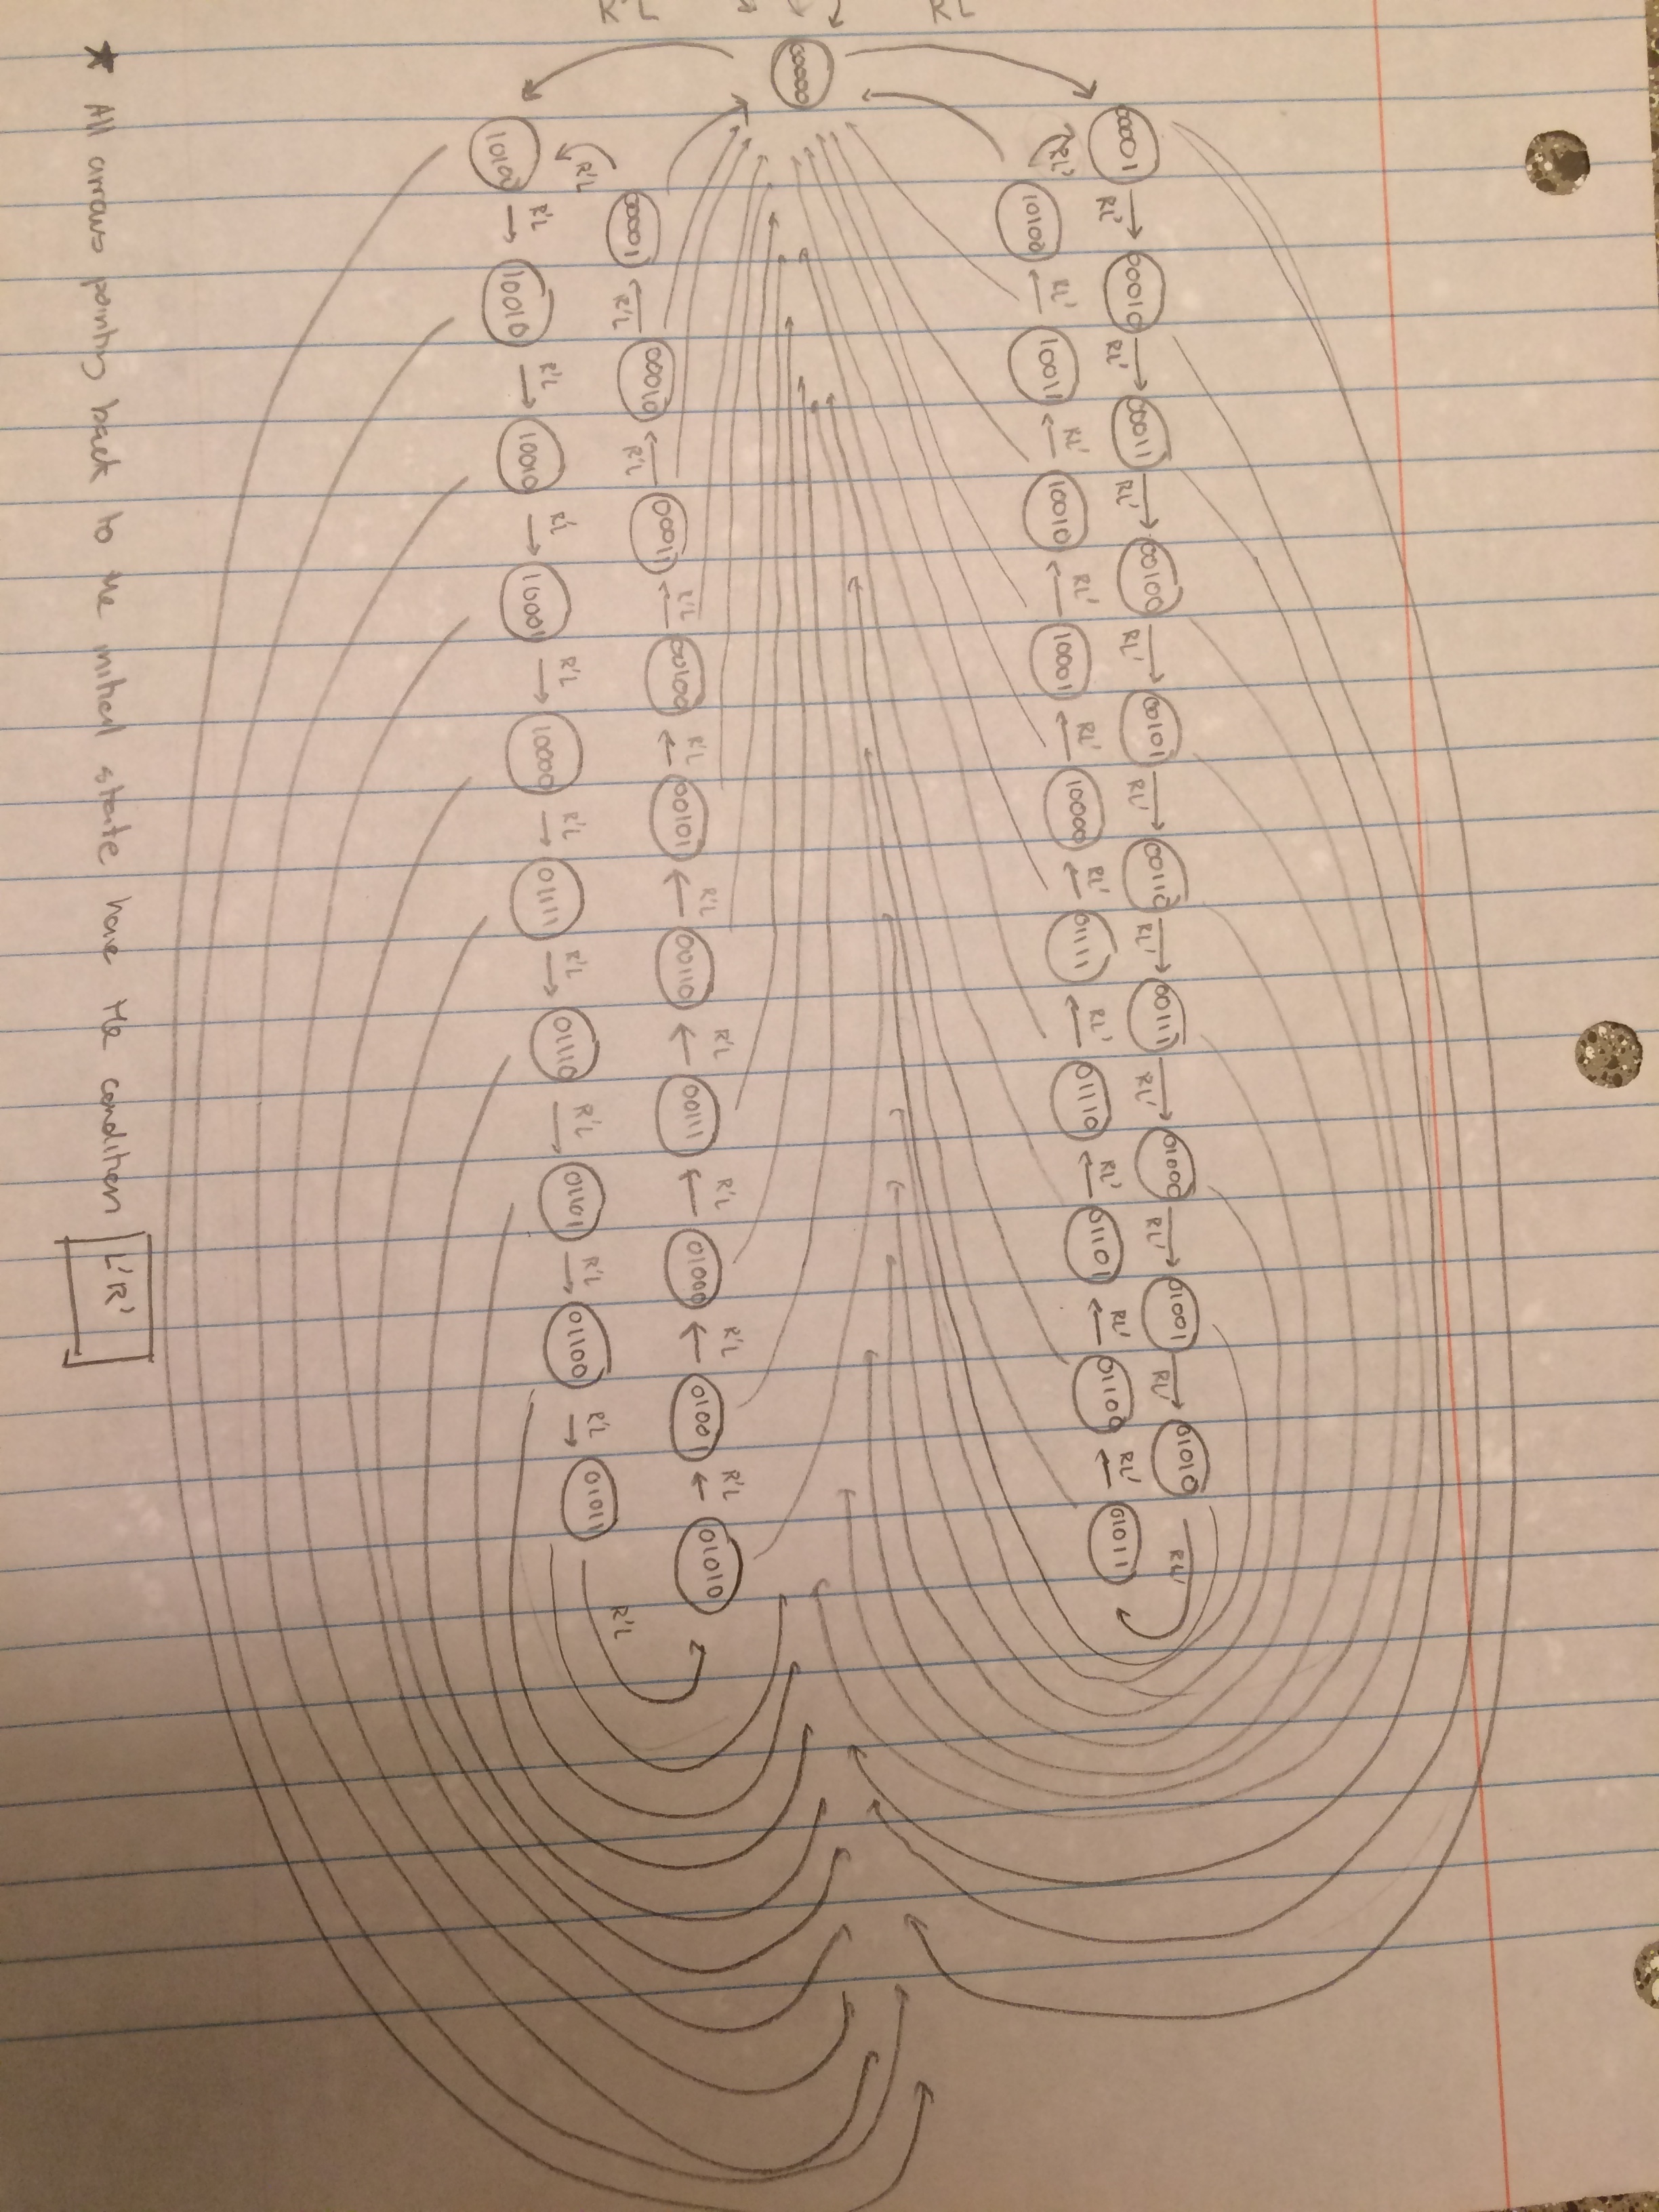 00001 RL' 00010 RL' 00011 RL' 00100 RL' 00101 RL' 00110 RL' 00111 RL' 01000 RL' 01001 RL' 01010 RL'
RL' 10100 RL' 10011 RL' 10010 RL' 10001 RL' 10000 RL' 01111 RL' 01110 RL' 01101 RL' 01100 RL' 01011
00000
00001 R'L 00010 R'L 00011 R'L 00100 R'L 00101 R'L 00110 R'L 00111 R'L 01000 R'L 01001 R'L 01010
R'L 10100 R'L 10010 R'L 10010 R'L 10001 R'L 10000 R'L 01111 R'L 01110 R'L 01101 R'L 01100 R'L 01011 R'L
★ All arrows pointing back to the initial state have the condition L'R'